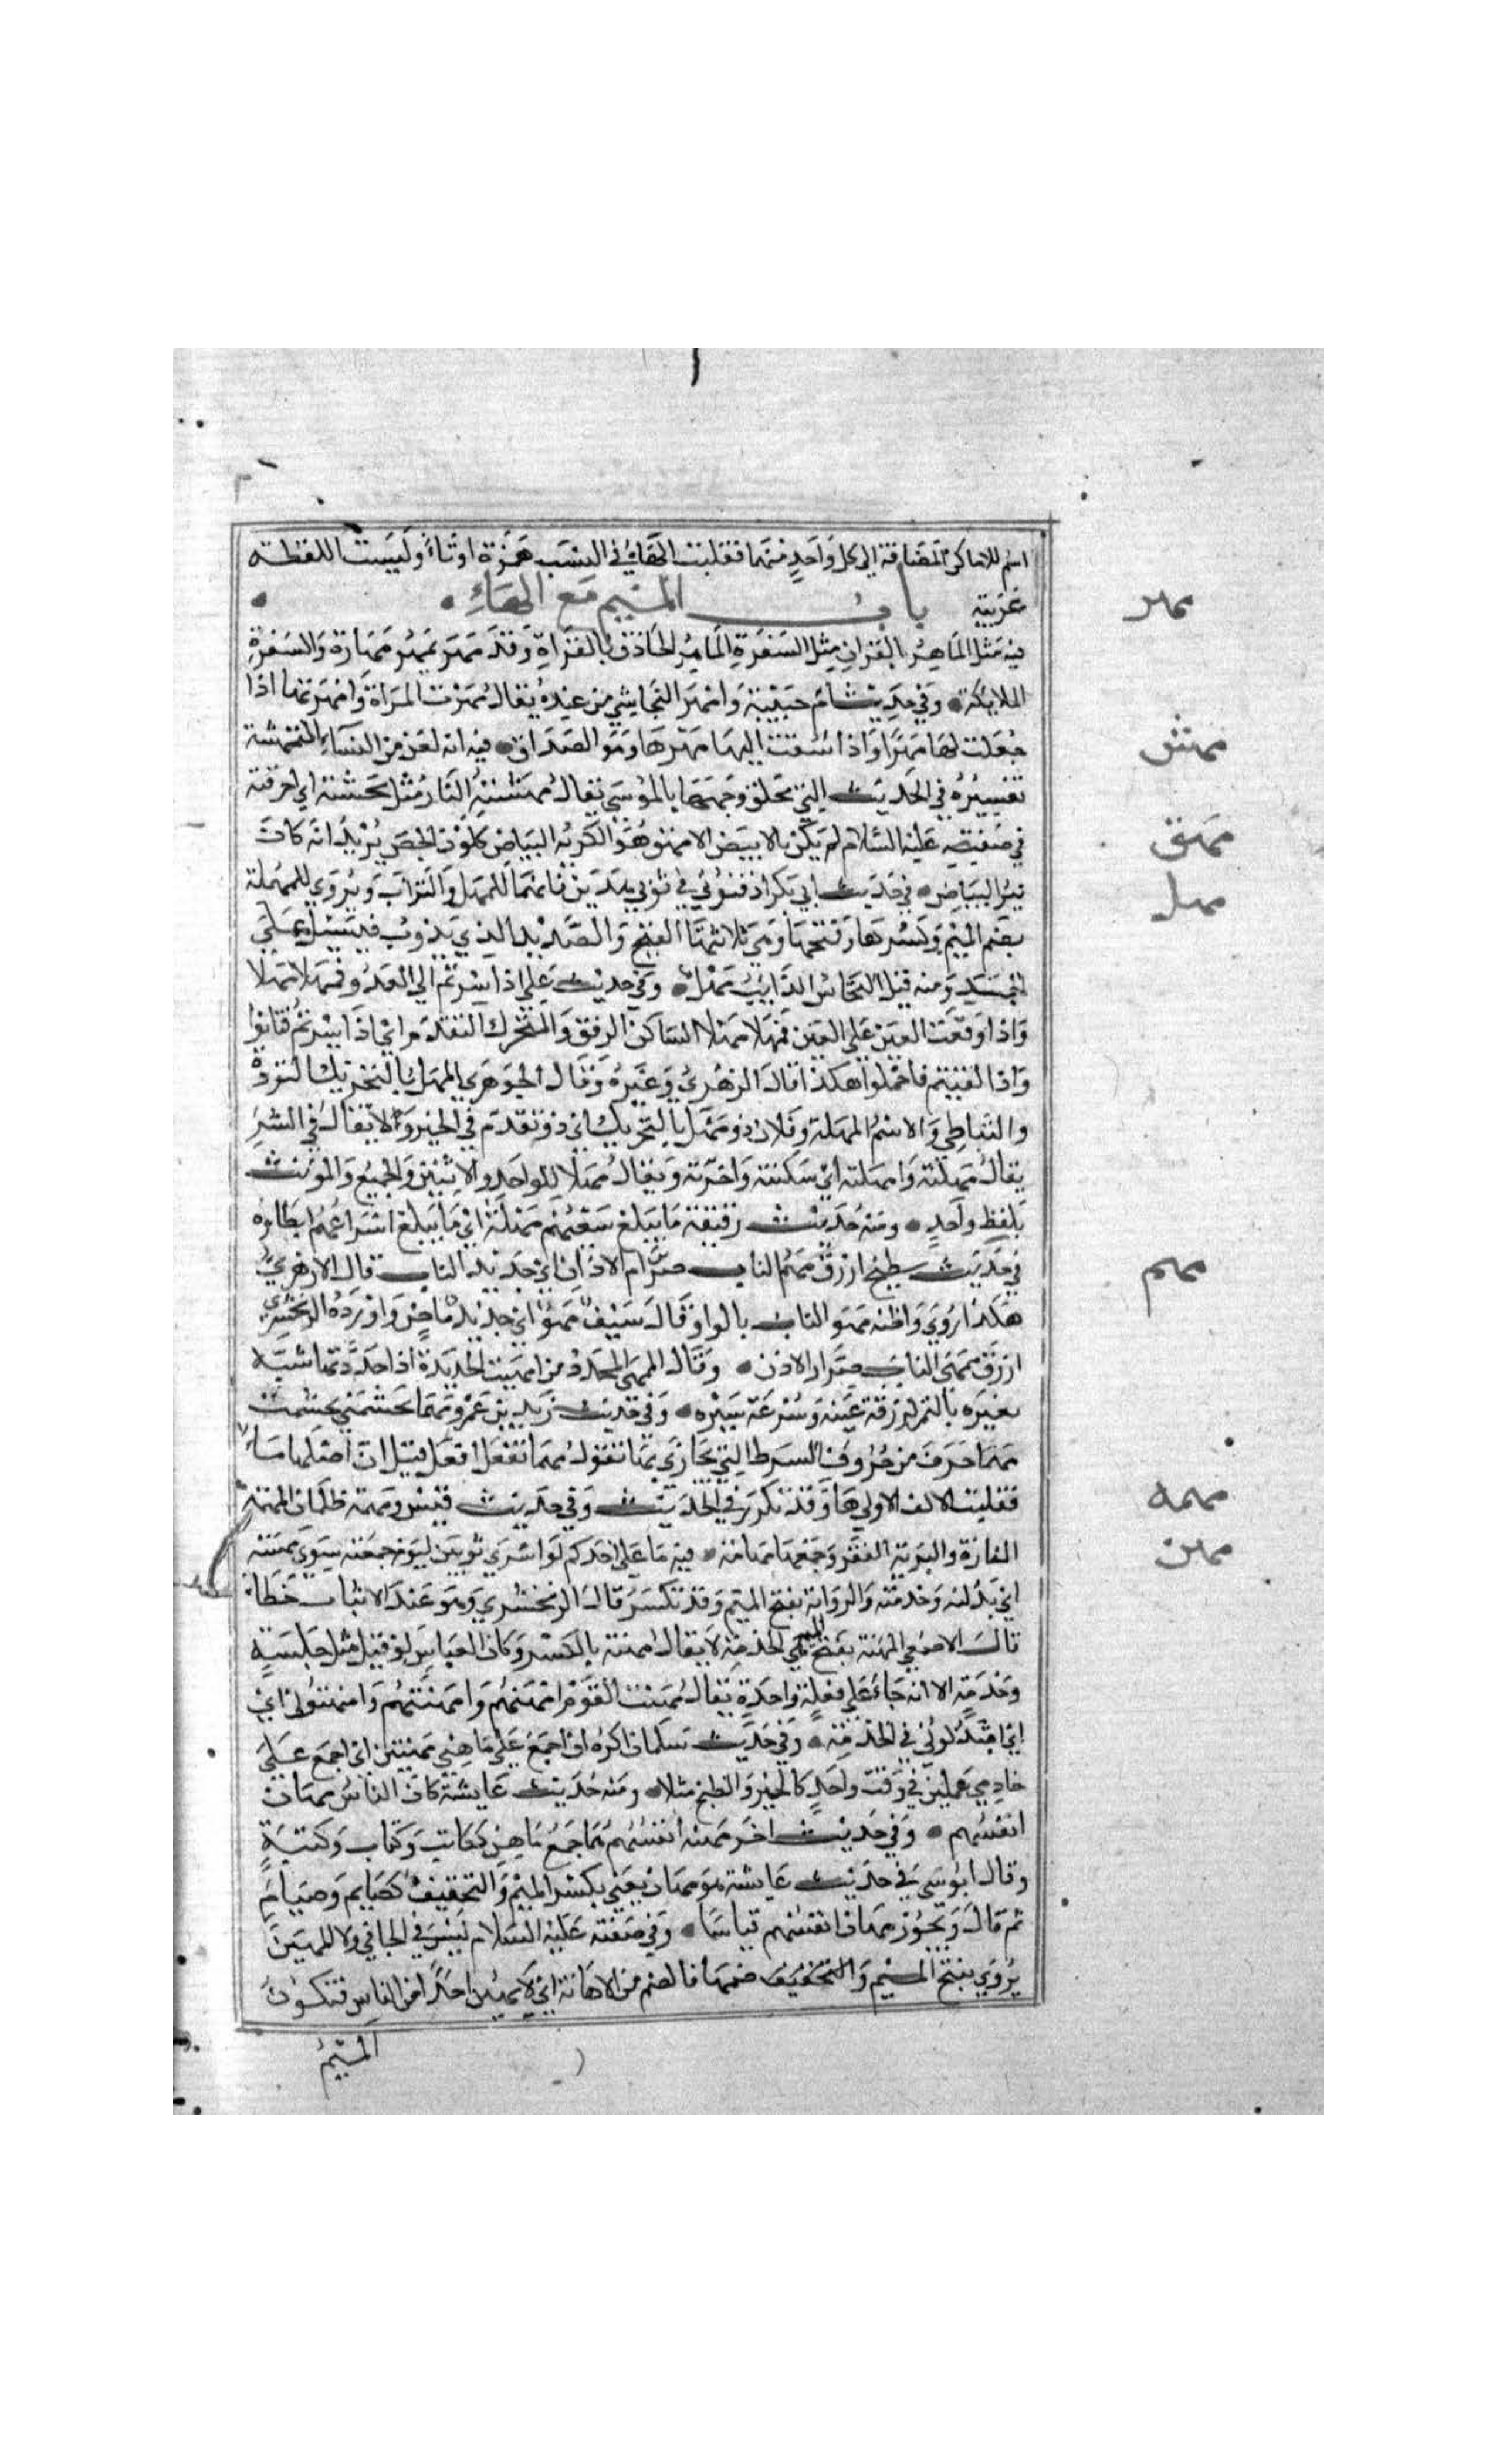 اسم للاماكن المضافة الى كل واحد منهما فقلبت الهاء في النسب همزة او ياء وليست اللفظة
عربية باب الميم مع الهاء
مهر
فيه مثل الماهر بالقران مثل السفرة الماهر الحاذق بالقراة وقد مهر يمهر مهارة والسفرة
الملايكة وفي حديث ام حبيبة وامهرها النجاشي من عنده يقال مهرت المراة وامهرتها اذا
جعلت لها مهرا واذا سقت اليها مهرها وهو الصداق فيه انه لعن من النساء الممتهشة
مهش
تفسيره في الحديث التي تحلق وجهها بالموسى يقال مهشته النار مثل محشته اي احرقته
مهق
في صفته عليه السلام لم يكن بالابيض الامهق هو الكريه البياض كلون الجص يريد انه كان
نير البياض في حديث ابي بكر ادفنوني في ثوبي هذين فانما هما للمهل والتراب ويروي للمهلة
مهل
بضم الميم وكسرها وفتحها وهي ثلاثتها القيح والصديد الذي يذوب فيسيل من
الجسد ومنه قيل للنحاس الذايب مهل وفي حديث علي اذا سرتم الى العدو فمهلا مهلا
واذا وقعت العين على العين فمهلا مهلا الساكن الرفق والمتحرك التقدم اي اذا سرتم فتانوا
واذا لقيتم فاحملوا هكذا قال الازهري وغيره وقال الجوهري المهل بالتحريك التؤدة
والتباطي والاسم المهلة وفلان ذو مهل بالتحريك اي ذو تقدم في الخير ولا يقال في الشر
يقال مهلته وامهلته اي سكنته واخرته ويقال مهلا للواحد والاثنين والجميع والمونث
بلفظ واحد ومنه حديث رقيقة ما يبلغ سعيهم مهله اي ما يبلغ اسراعهم ابطاه
مهم
في حديث سطيح ازرق مهم الناب صرار الاذن اي حديد الناب قال الازهري
هكذا روي واظنه مهو الناب بالواو يقال سيف مهو اي حديد ماض واورده الزمخشري
ازرق ممهى الناب صرار الاذن وقال الممهى المحدد من امهيت الحديدة اذا حددتها شبه
بعيره بالنمر لزرقة عينه وسرعة سيره وفي حديث زيد بن عمرو مهما تجشمني تجشمت
مهما حرف من حروف الشرط التي يجازى بها تقول مهما تفعل افعل قيل ان اصلها ماما
فقلبت الالف الاولى ها وقد تكرر في الحديث وفي حديث قس ومهمه ظلمان المهمه
مهمه
المفازة والبرية القفر وجمعها مهامه فيه ما على احدكم لو اشترى ثوبين ليوم جمعته سوى ثوبي مهنته
مهن
اي بذلته وخدمته والرواية بفتح الميم وقد تكسر قال الزمخشري وهو عند الاثبات خطا
قال الاصمعي المهنة بفتح الميم هي الخدمة لا يقال مهنة بالكسر وكان القياس لو قيل مثل جلسة
وخدمة الا انه جاء على فعلة واحدة يقال مهنت القوم امهنهم وامهنتهم وامتهنوني اي
اي ابتذلوني في الخدمة وفي حديث سلمان اكره ان اجمع على ماهني مهنتين اي اجمع على
خادمي عملين في وقت واحد كالخبز والطبخ مثلا ومنه حديث عايشة كان الناس مهان
انفسهم وفي حديث اخر مهنة انفسهم هما جمع ماهن ككاتب وكتاب وكتبة
وقال ابو موسى في حديث عايشة هو مهان يعني بكسر الميم والتخفيف كصايم وصيام
ثم قال ويجوز مهان انفسهم قياسا وفي صفته عليه السلام ليس في الجافي ولا المهين
يروي بفتح الميم والتخفيف ضمها فالضم من الاهانة اي لا يهين احدا من الناس فتكون
الميم